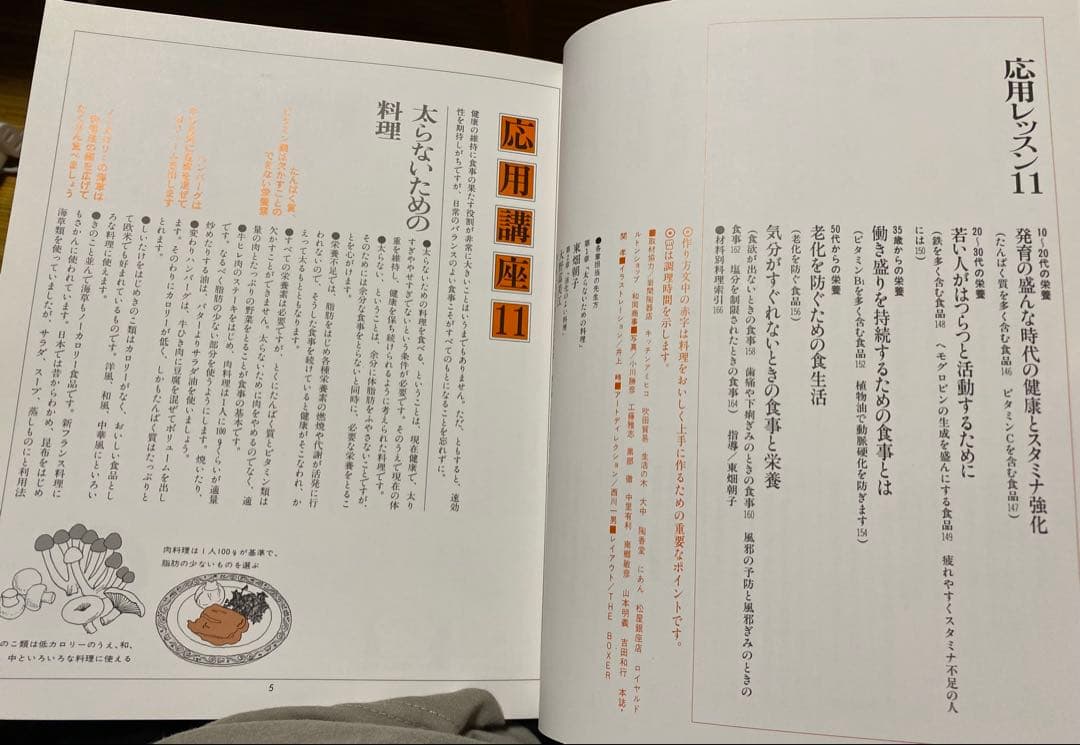 応用レッスン11
10〜20代の栄養
発育の盛んな時代の健康とスタミナ強化
(たんぱく質を多く含む食品146 ビタミンCを含む食品147)
20〜30代の栄養
若い人がはつらつと活動するために
(鉄を多く含む食品148 ヘモグロビンの生成を盛んにする食品149 疲れやすくスタミナ不足の人
には150)
35歳からの栄養
働き盛りを持続するための食事とは
(ビタミンB₁を多く含む食品152 植物油で動脈硬化を防ぎます154)
50代からの栄養
老化を防ぐための食生活
(老化を防ぐ食品156)
気分がすぐれないときの食事と栄養
(食欲が出ないときの食事158 歯痛や下痢ぎみのときの食事160 風邪の予防と風邪ぎみのときの
食事162 塩分を制限されたときの食事164) 指導/東畑朝子
●材料別料理索引166
◎作り方文中の赤字は料理をおいしく上手に作るための重要なポイントです。
は調理時間を示します。
■取材協力/岩間陶器店 キッチンアミヒコ 吹田貿易 生活の木 大中 陶香堂 にあん 松屋銀座店 ロイヤルド
ルトンショップ 和岡商事■写真/小川勝彦 工藤雅志 黒部 徹 中里有利 南郷敏彦 山本明義 吉田和行 本誌・
関 孝■イラストレーション/井上 峰■アートディレクション/西川一男■レイアウト/THE BOXER
●各章担当の先生方
第1章「太らないための料理」
東畑朝子
応用講座11
健康の維持に食事の果たす役割が非常に大きいことはいうまでもありません。ただ、ともすると、速効
性を期待しがちですが、日常のバランスのよい食事こそがすべてのもとになることを忘れずに。
太らないための
料理
●太らないための料理を食べる、ということは、現在健康で、太り
すぎややせすぎでないという条件が必要です。そのうえで現在の体
重を維持し、健康を保ち続けられるように考えられた料理です。
●太らない、ということは、余分に体脂肪をふやさないことですが、
そのためには余分な食事をとらないと同時に、必要な栄養をとるこ
とを心がけます。
●栄養不足では、脂肪をはじめ各種栄養素の燃焼や代謝が活発に行
われないので、そうした食事を続けていると健康がそこなわれ、か
えって太るもとともなります。
●すべての栄養素は必要ですが、とくにたんぱく質とビタミン類は
欠かすことができません。太らないために肉をやめるのでなく、適
量の肉とたっぷりの野菜をとることが食事の基本です。
●牛ヒレ肉のステーキをはじめ、肉料理は1人に100gくらいが適量
です。なるべく脂肪の少ない部分を使うようにします。焼いたり、
炒めたりする油は、バターよりサラダ油を使いましょう。
●変わりハンバーグは、牛ひき肉に豆腐を混ぜてボリュームを出し
ます。そのわりにカロリーが低く、しかもたんぱく質はたっぷりと
とれます。
●しいたけをはじめきのこ類はカロリーがなく、おいしい食品とし
て欧米でも好まれているものです。洋風、和風、中華風にといろい
ろな料理に使えます。
●きのこと並んで海草もノーカロリー食品です。新フランス料理に
もさかんに使われています。日本では昔からわかめ、昆布をはじめ
海草類を使っていましたが、サラダ、スープ、蒸しものにと利用法
たんぱく質、
ビタミン類は欠かすことの
できない栄養素
ハンバーグは
ノーカロリーの海草は
たくさん食べましょう
肉料理は1人100gが基準で、
脂肪の少ないものを選ぶ
のこ類は低カロリーのうえ、和、
中といろいろな料理に使える
5